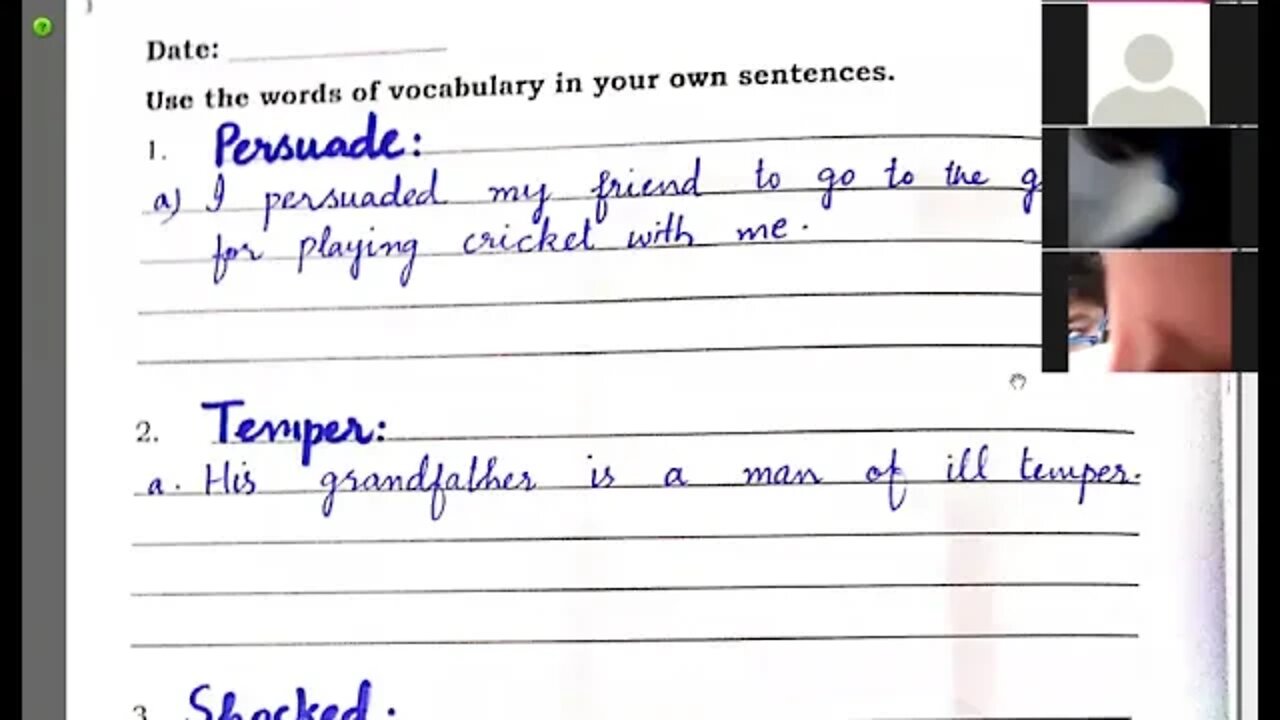 Date:
Use the words of vocabulary in your own sentences.
1. Persuade:
a) I persuaded my friend to go to the
for playing cricket with me.
2. Temper:
a. His grandfather is a man of ill temper.
3 Shocked: